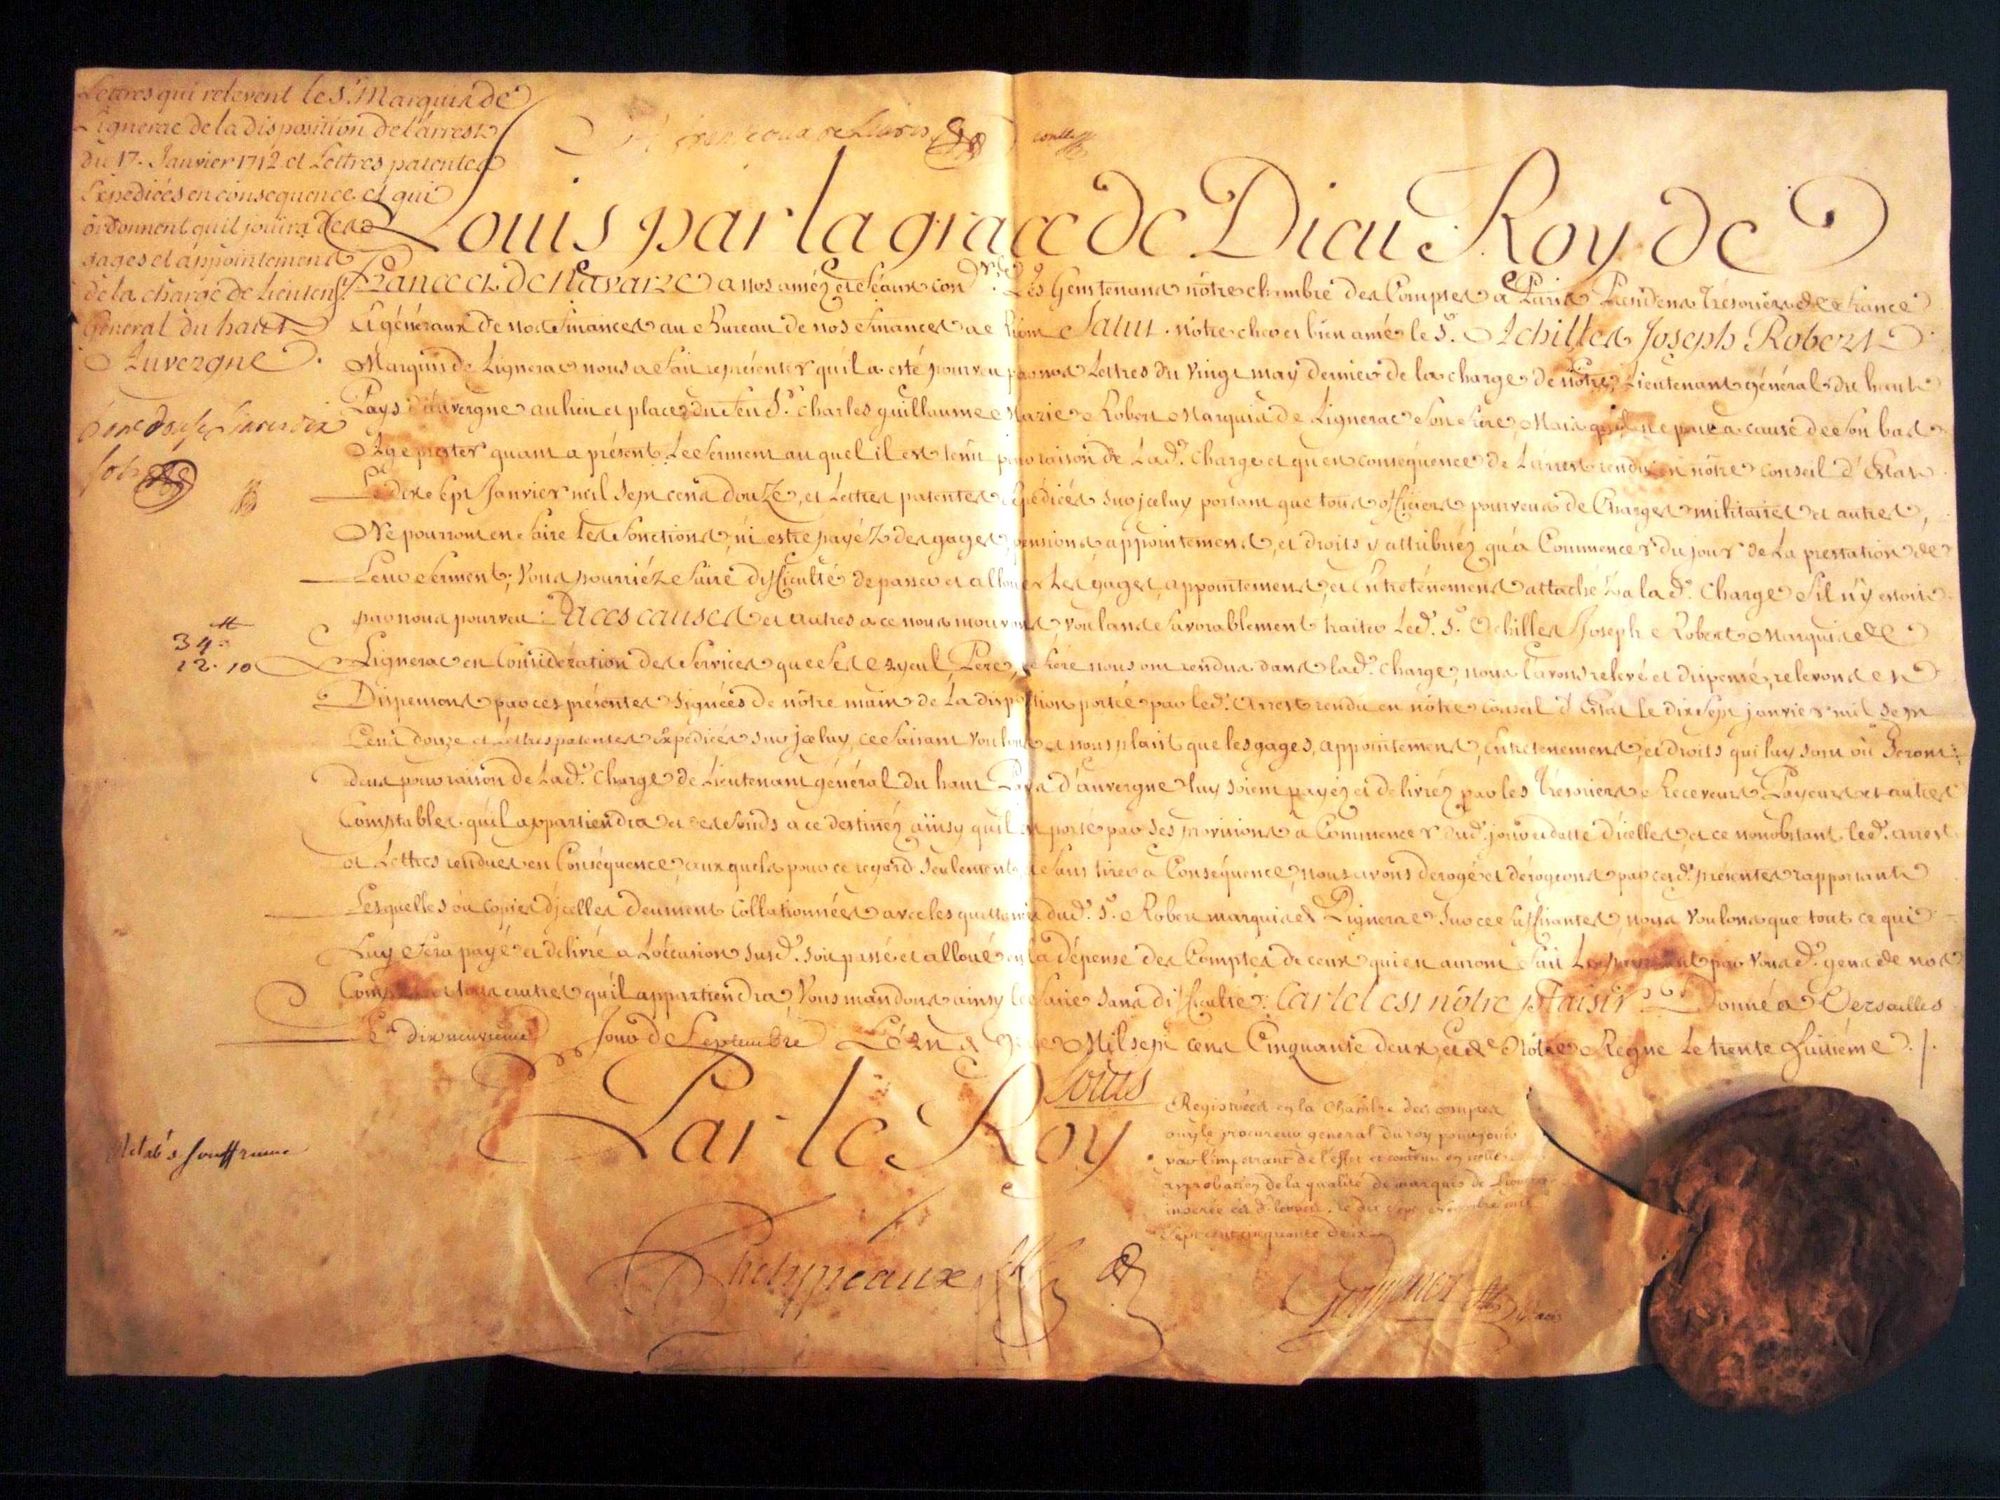 Lettres qui relevent le S.r Marquis de
Lignerac de la disposition de l'arrest
du 17. Janvier 1712 et Lettres patentes
Expediées en consequence et qui
ordonnent qu'il jouira des
gages et appointemens
de la charge de Lieuten.t
General du haut
Auvergne.
34.tt
12. 10
Louis par la grace de Dieu Roy de
France et de Navarre a nos améz et feaux con.ers Les Gens tenans nôtre chambre des Comptes a Paris Presidens Trésoriers de france
et généraux de nos finances au Bureau de nos finances a Riom Salut. nôtre cher et bien amé le S.r Achilles Joseph Robert
Marquis de Lignerac nous a fait représenter qu'il a esté pourveu par nos Lettres du vingt may dernier de la charge de nôtre Lieutenant général du haut
Pays d'auvergne au lieu et place du feu S.r Charles guillaume Marie Robert Marquis de Lignerac son frere, Mais qu'il ne peut a cause de son bas
Age prester quant a présent Le serment au quel il est tenu pour raison de Lad. Charge et qu'en conséquence de L'arrest rendu en nôtre conseil d'Estat
Le dix sept Janvier mil sept cens douze, et Lettres patentes expédiées sur jceluy portant que tous officiers pourveus de Charges militaires et autres,
Ne pourront en faire les fonctions, ni estre payéz des gages, pensions, appointemens, et droits y attribuéz qu'a Commencer du jour de La prestation de
Leur serment; vous pourriéz faire difficulté de passer et allouer Les gages, appointemens, et Entretenemens attachéz a la d. Charge s'il n'y estoit
par nous pourveu: A ces causes et autres a ce nous mouvans, voulans favorablement traiter Led. S. Achilles Joseph Robert Marquis de
Lignerac en Considération des Services que ses ayeul, Pere, et frere nous ont rendus dans lad. charge, nous L'avons relevé et dispensé, relevons et
Dispensons par ces présentes signées de nôtre main de La disposition portée par led. Arrest rendu en nôtre Conseil d'Estat Le dix sept janvier mil sept
Cens douze et Lettres patentes expédiées sur jceluy, ce faisant voulons et nous plait que les gages, appointemens, entretenemens, et droits qui luy sont où Seront
deus pour raison de Lad. Charge de Lieutenant général du haut Pays d'auvergne luy soient payéz et delivréz par les Trésoriers Receveurs Payeurs et autres
Comptables qu'il appartiendra et des fonds a ce destinéz ainsy qu'il est porté par ses provisions a Commencer dud. jour et datte d'icelles, et ce nonobstant led. arrest
et Lettres rendues en Conséquence, aux quels pour ce regard seulement et sans tirer a Conséquence, nous avons dérogé et dérogeons par cesd. présentes rapportant
Lesquelles où copies d'jcelles deument Collationnées avec les quittances dud. S. Robert marquis de Lignerac sur ce suffisantes, nous voulons que tout ce qui
Luy sera payé et delivré a L'occasion susd. soit passé et alloué en la dépense des Comptes de ceux qui en auront fait Le payement par vousd. gens de nos
Comptes et tous autres qu'il appartiendra, Vous mandons ainsy le faire sans difficulté: Car tel est nôtre plaisir. Donné a Versailles
Le dix neuvieme jour de Septembre L'an de Mil sept cens Cinquante deux, et de Nôtre Regne Le trente huitiéme.
Louis
Par le Roy
Phelypeaux
Registrées en la Chambre des comptes
ouy le procureur general du roy pour jouir
par l'impetrant de l'effet et contenu en icelles
approbation de la qualité de marquis de Lignerac
inserée le dix sept
Sept cent cinquante deux